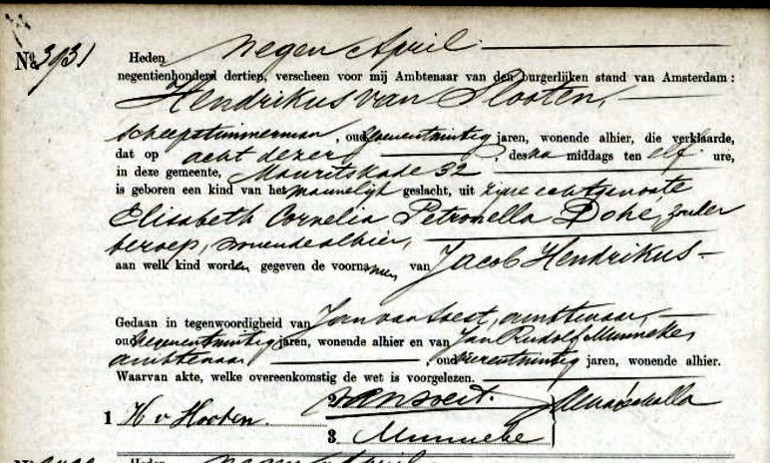 No. 3931
Heden negen April
negentienhonderd dertien, verscheen voor mij Ambtenaar van den burgerlijken stand van Amsterdam:
Hendrikus van Slooten,
scheepstimmerman, oud jaren, wonende alhier, die verklaarde,
dat op acht dezer, des na middags ten elf ure,
in deze gemeente, Mauritskade 32
is geboren een kind van het mannelijk geslacht, uit zijne echtgenoote
Elisabeth Cornelia Petronella Dohé, zonder
beroep, wonende alhier,
aan welk kind worden gegeven de voornamen van Jacob Hendrikus
Gedaan in tegenwoordigheid van Jan van Soest, ambtenaar,
oud negenentwintig jaren, wonende alhier en van Jan Rudolf Munneke,
ambtenaar, oud jaren, wonende alhier.
Waarvan akte, welke overeenkomstig de wet is voorgelezen.
1 H v Slooten. 2 van Soest.
3 Munneke
No. Heden negen April